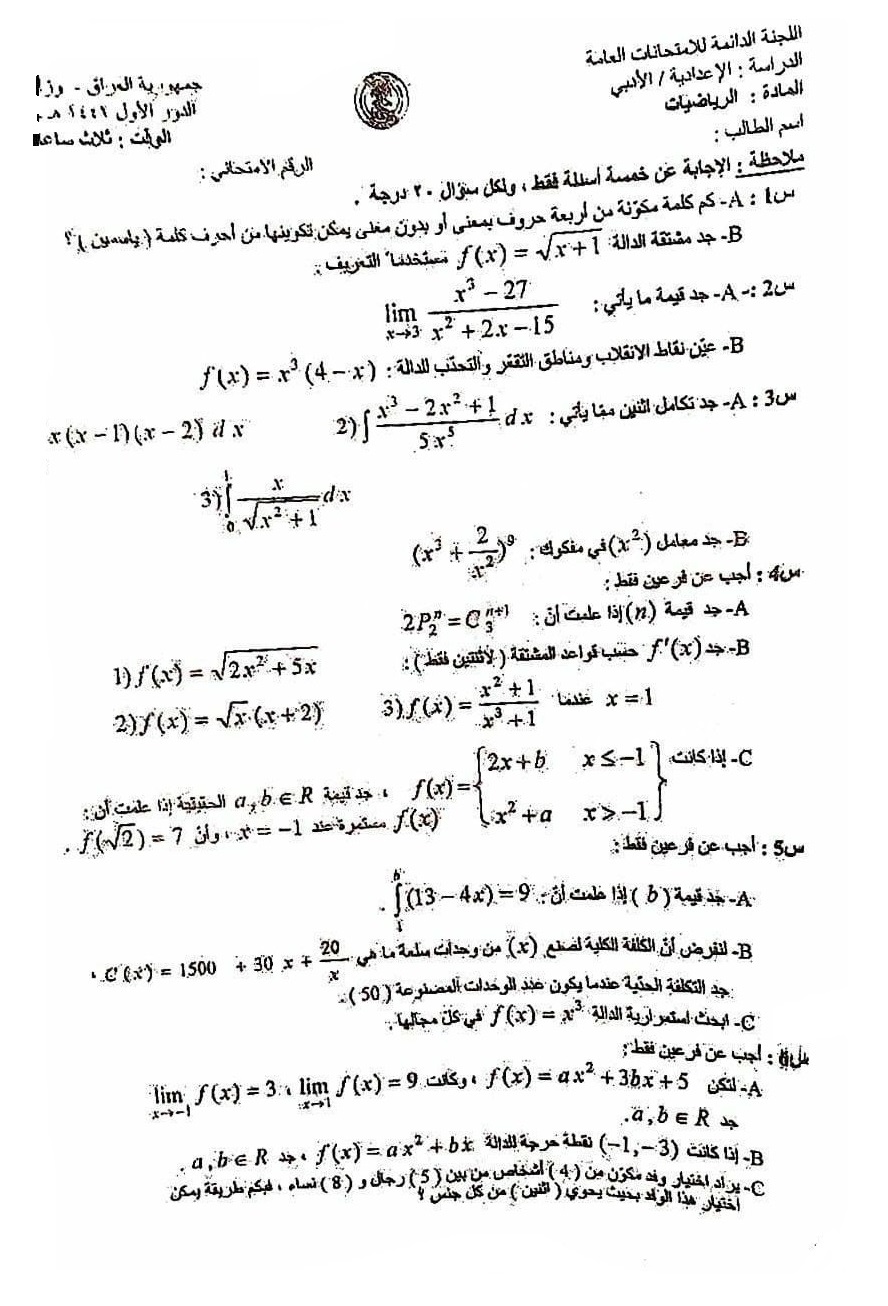 اللجنة الدائمة للامتحانات العامة
الدراسة : الإعدادية / الأدبي
المادة : الرياضيات
اسم الطالب :
جمهورية العراق -
الدور الأول
الوقت : ثلاث
الرقم الامتحاني :
ملاحظة : الإجابة عن خمسة أسئلة فقط ، ولكل سؤال ٢٠ درجة .
س1 : A- كم كلمة مكوّنة من أربعة حروف بمعنى أو بدون معنى يمكن تكوينها من أحرف كلمة ( ياسمين ) ؟
B- جد مشتقة الدالة f(x) = √(x+1) مستخدماً التعريف :
س2 :- A- جد قيمة ما يأتي : lim x→3 (x³ − 27)/(x² + 2x − 15)
B- عيّن نقاط الانقلاب ومناطق التقعّر والتحدّب للدالة : f(x) = x³ (4 − x)
س3 : A- جد تكامل اثنين ممّا يأتي : 2) ∫ (x³ − 2x² + 1)/(5x⁵) dx x(x − 1)(x − 2) dx
3) ∫₀¹ x/√(x² + 1) dx
B- جد معامل (x²) في مفكوك : (x³ + 2/x²)⁹
س4 : أجب عن فرعين فقط :
A- جد قيمة (n) إذا علمت أنّ : 2P₂ⁿ = C₃ⁿ⁺¹
B- جد f′(x) حسب قواعد المشتقة ( لاثنتين فقط ) :
1) f(x) = √(2x² + 5x)
2) f(x) = √x (x + 2) 3) f(x) = (x² + 1)/(x³ + 1) عندما x = 1
C- إذا كانت f(x) = { 2x + b x ≤ −1 , x² + a x > −1 } ، جد قيمة a , b ∈ R الحقيقية إذا علمت أن :
f(x) مستمرة عند x = −1 ، وأن f(√2) = 7 .
س5 : أجب عن فرعين فقط :
A- جد قيمة ( b ) إذا علمت أنّ : ∫₁ᵇ (13 − 4x) = 9 .
B- لنفرض أنّ الكلفة الكلية لصنع (x) من وحدات سلعة ما هي C(x) = 1500 + 30 x + 20/x ،
جد التكلفة الحدّية عندما يكون عدد الوحدات المصنوعة (50) .
C- ابحث استمرارية الدالة f(x) = x³ في كلّ مجالها .
: أجب عن فرعين فقط :
A- لتكن f(x) = ax² + 3bx + 5 ، وكانت lim x→1 f(x) = 9 ، lim x→−1 f(x) = 3
جد a , b ∈ R .
B- إذا كانت (−1,−3) نقطة حرجة للدالة f(x) = ax² + bx ، جد a , b ∈ R .
C- يراد اختيار وفد مكوّن من ( 4 ) أشخاص من بين ( 5 ) رجال و ( 8 ) نساء ، فبكم طريقة يمكن
اختيار هذا الوفد بحيث يحوي ( اثنين ) من كلّ جنس ؟